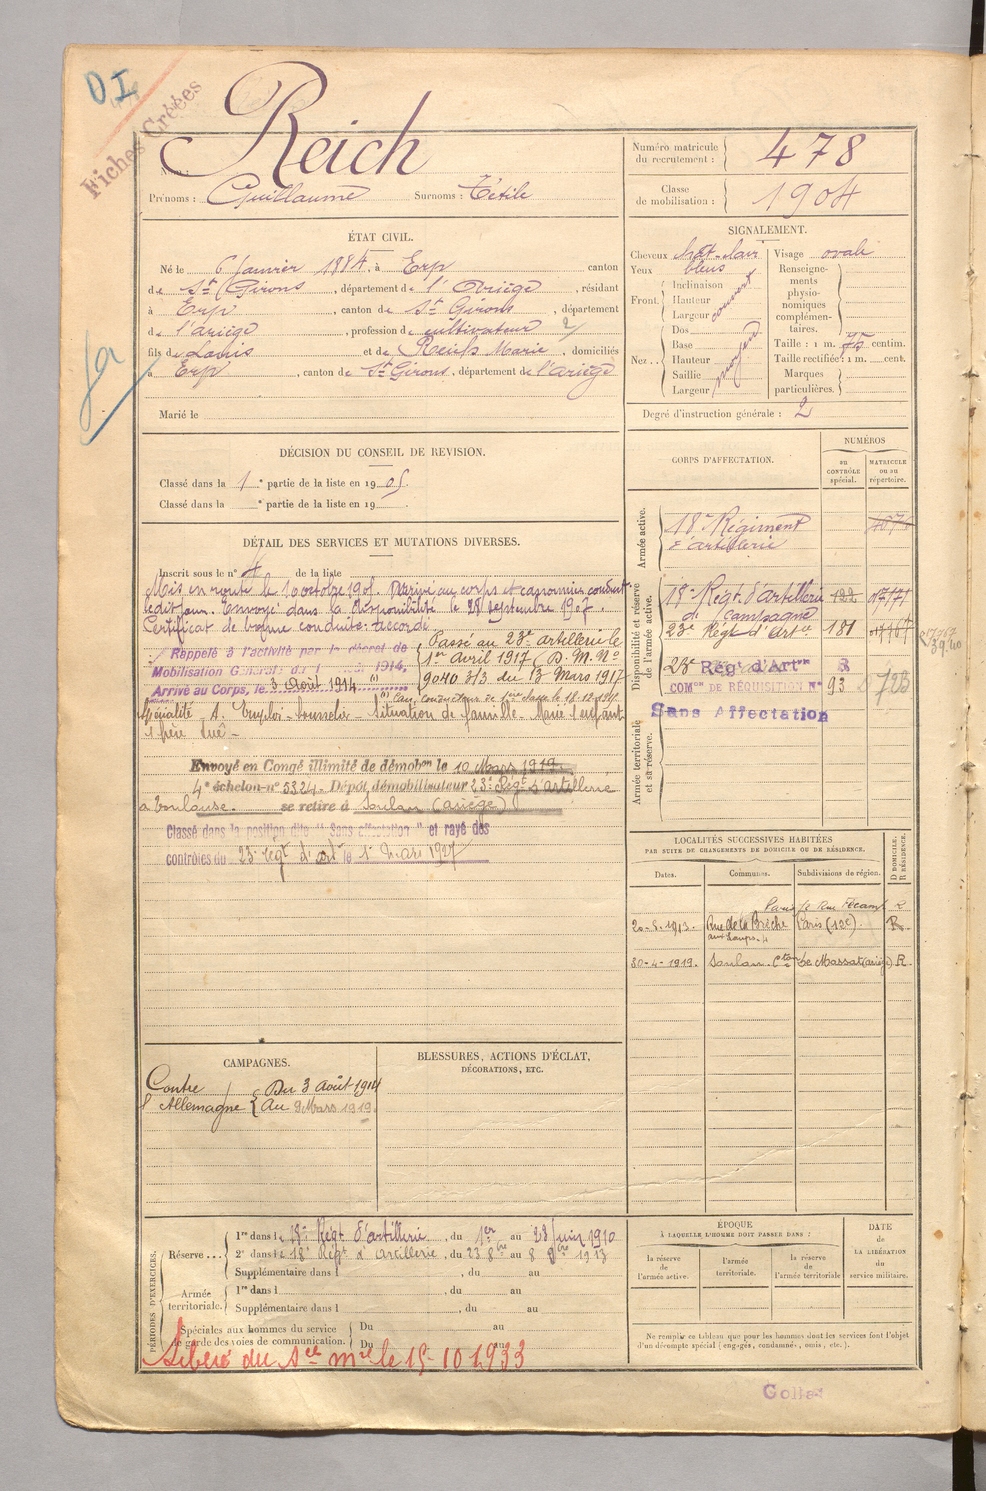 DI
Fiches Créées
Reich
Nom :
Prénoms : Guillaume Surnoms : Tétile
Numéro matricule du recrutement : 478
Classe de mobilisation : 1904
ÉTAT CIVIL.
Né le 6 Janvier 1884, à Erp canton
de St Girons, département de l'Ariège, résidant
à Erp, canton de St Girons, département
de l'ariège, profession de cultivateur
fils de Louis et de Marie, domiciliés
à Erp, canton de St Girons, département de l'ariège
Marié le
SIGNALEMENT.
Cheveux chât-clair
Yeux bleus
Front. Inclinaison
Hauteur
Largeur
couvert
Nez Dos
Base
Hauteur
Saillie
Largeur
moyen
Visage ovale
Renseignements physionomiques complémentaires.
Taille : 1 m. 75 centim.
Taille rectifiée : 1 m. cent.
Marques particulières.
Degré d'instruction générale : 2
DÉCISION DU CONSEIL DE REVISION.
Classé dans la 1e partie de la liste en 1905.
Classé dans la e partie de la liste en 19 .
DÉTAIL DES SERVICES ET MUTATIONS DIVERSES.
Inscrit sous le n° de la liste
Mis en route le 10 octobre 1905. Arrivé au corps et canonnier conduct
ledit jour. Envoyé dans la disponibilité le 28 septembre 1907.
Certificat de bonne conduite accordé.
Rappelé à l'activité par le décret de
Mobilisation Générale du 1 1914,
Arrivé au Corps, le 3 Août 1914 (1)
Passé au 23e artillerie le
1er Avril 1917 (D. M. No
9040 3/3 du 13 Mars 1917
Situation de famille - Marié 1 enfant
1 frère tué -
Envoyé en Congé illimité de démobon le 10 Mars 1919.
4e échelon n° 5324. Dépôt démobilisateur 23e Régt d'artillerie
a Toulouse. se retire à Soulan (ariège)
Classé dans la position dite "Sans affectation" et rayé des
contrôles du 23e régt d'art le 1er Mars 1927
CORPS D'AFFECTATION.
NUMÉROS
au CONTRÔLE spécial.
MATRICULE ou au répertoire.
Armée active.
18e Régiment
d'artillerie
Disponibilité et réserve de l'armée active.
18e Régt. d'artillerie 122
de campagne
23e Régt d'Artie 181
23e Régt d'Artie
COMon DE RÉQUISITION N° 93
Sans Affectation
Armée territoriale et sa réserve.
LOCALITÉS SUCCESSIVES HABITÉES
PAR SUITE DE CHANGEMENTS DE DOMICILE OU DE RÉSIDENCE.
D DOMICILE. R RÉSIDENCE.
Dates. Communes. Subdivisions de région.
Rue de la Brèche Paris (12e) R
aux Loups. 4
30-4-1919. Soulan. Cton de Massat (ariège) R
CAMPAGNES.
Contre
l'Allemagne
Du 3 Août 1914
Au 9 Mars 1919.
BLESSURES, ACTIONS D'ÉCLAT,
DÉCORATIONS, ETC.
PÉRIODES D'EXERCICES.
Réserve ...
1re dans le 18e Régt d'artillerie, du 1er au 23 juin 1910
2e dans le 18e Régt d'artillerie, du 23 8bre au 8 9bre 1913
Supplémentaire dans l , du au
Armée territoriale.
1re dans l , du au
Supplémentaire dans l , du au
Spéciales aux hommes du service de garde des voies de communication.
Du au
Du au
Libéré du Sce mre le 15-10 1933
ÉPOQUE
À LAQUELLE L'HOMME DOIT PASSER DANS :
la réserve de l'armée active.
l'armée territoriale.
la réserve de l'armée territoriale
DATE de LA LIBÉRATION du service militaire.
Ne remplir ce tableau que pour les hommes dont les services font l'objet
d'un décompte spécial (engagés, condamnés, omis, etc.).